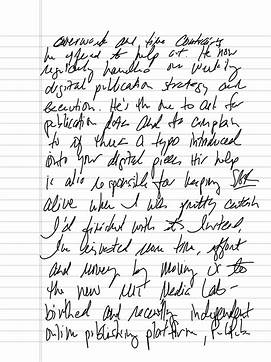 overwork and time constraints
he offered to help out. He now
regularly handles our weekly
digital publication strategy and
execution. He's the one to ask for
publication dates and to complain
to if there's a typo introduced
into your digital piece. His help
is also responsible for keeping
alive when I was pretty certain
I'd finished with it. Instead,
I've invested more time, effort
and money by moving it to
the new MIT Media Lab-
birthed and recently independent
online publishing platform, PubPub